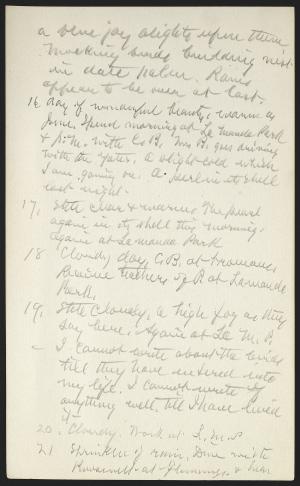 a blue jay alights upon them
Mocking birds building nest
in date palm. Rains
appear to be over at last.
16 day of wonderful beauty, warm as
June. Spend morning at La Manda Park
& P.M. with C.B. Mrs B. goes driving
with the Yates. A slight cold which
I am going on. A in its shell
last night.
17, Still clear & warm. The
again in its shell this morning.
again at La Manda Park
18 Cloudy day, C.B. at
Receive of R at Lamanda
Park.
19, Still Cloudy, a high fog as they
say here. Again at La M. P.
– I cannot write about the birds
till they have entered into
my life. I cannot write of
anything well, till I have lived
it –
20. Cloudy. Work at L. M. P
21 Sprinkle of rain, Dine with
Roosevelt at & hear